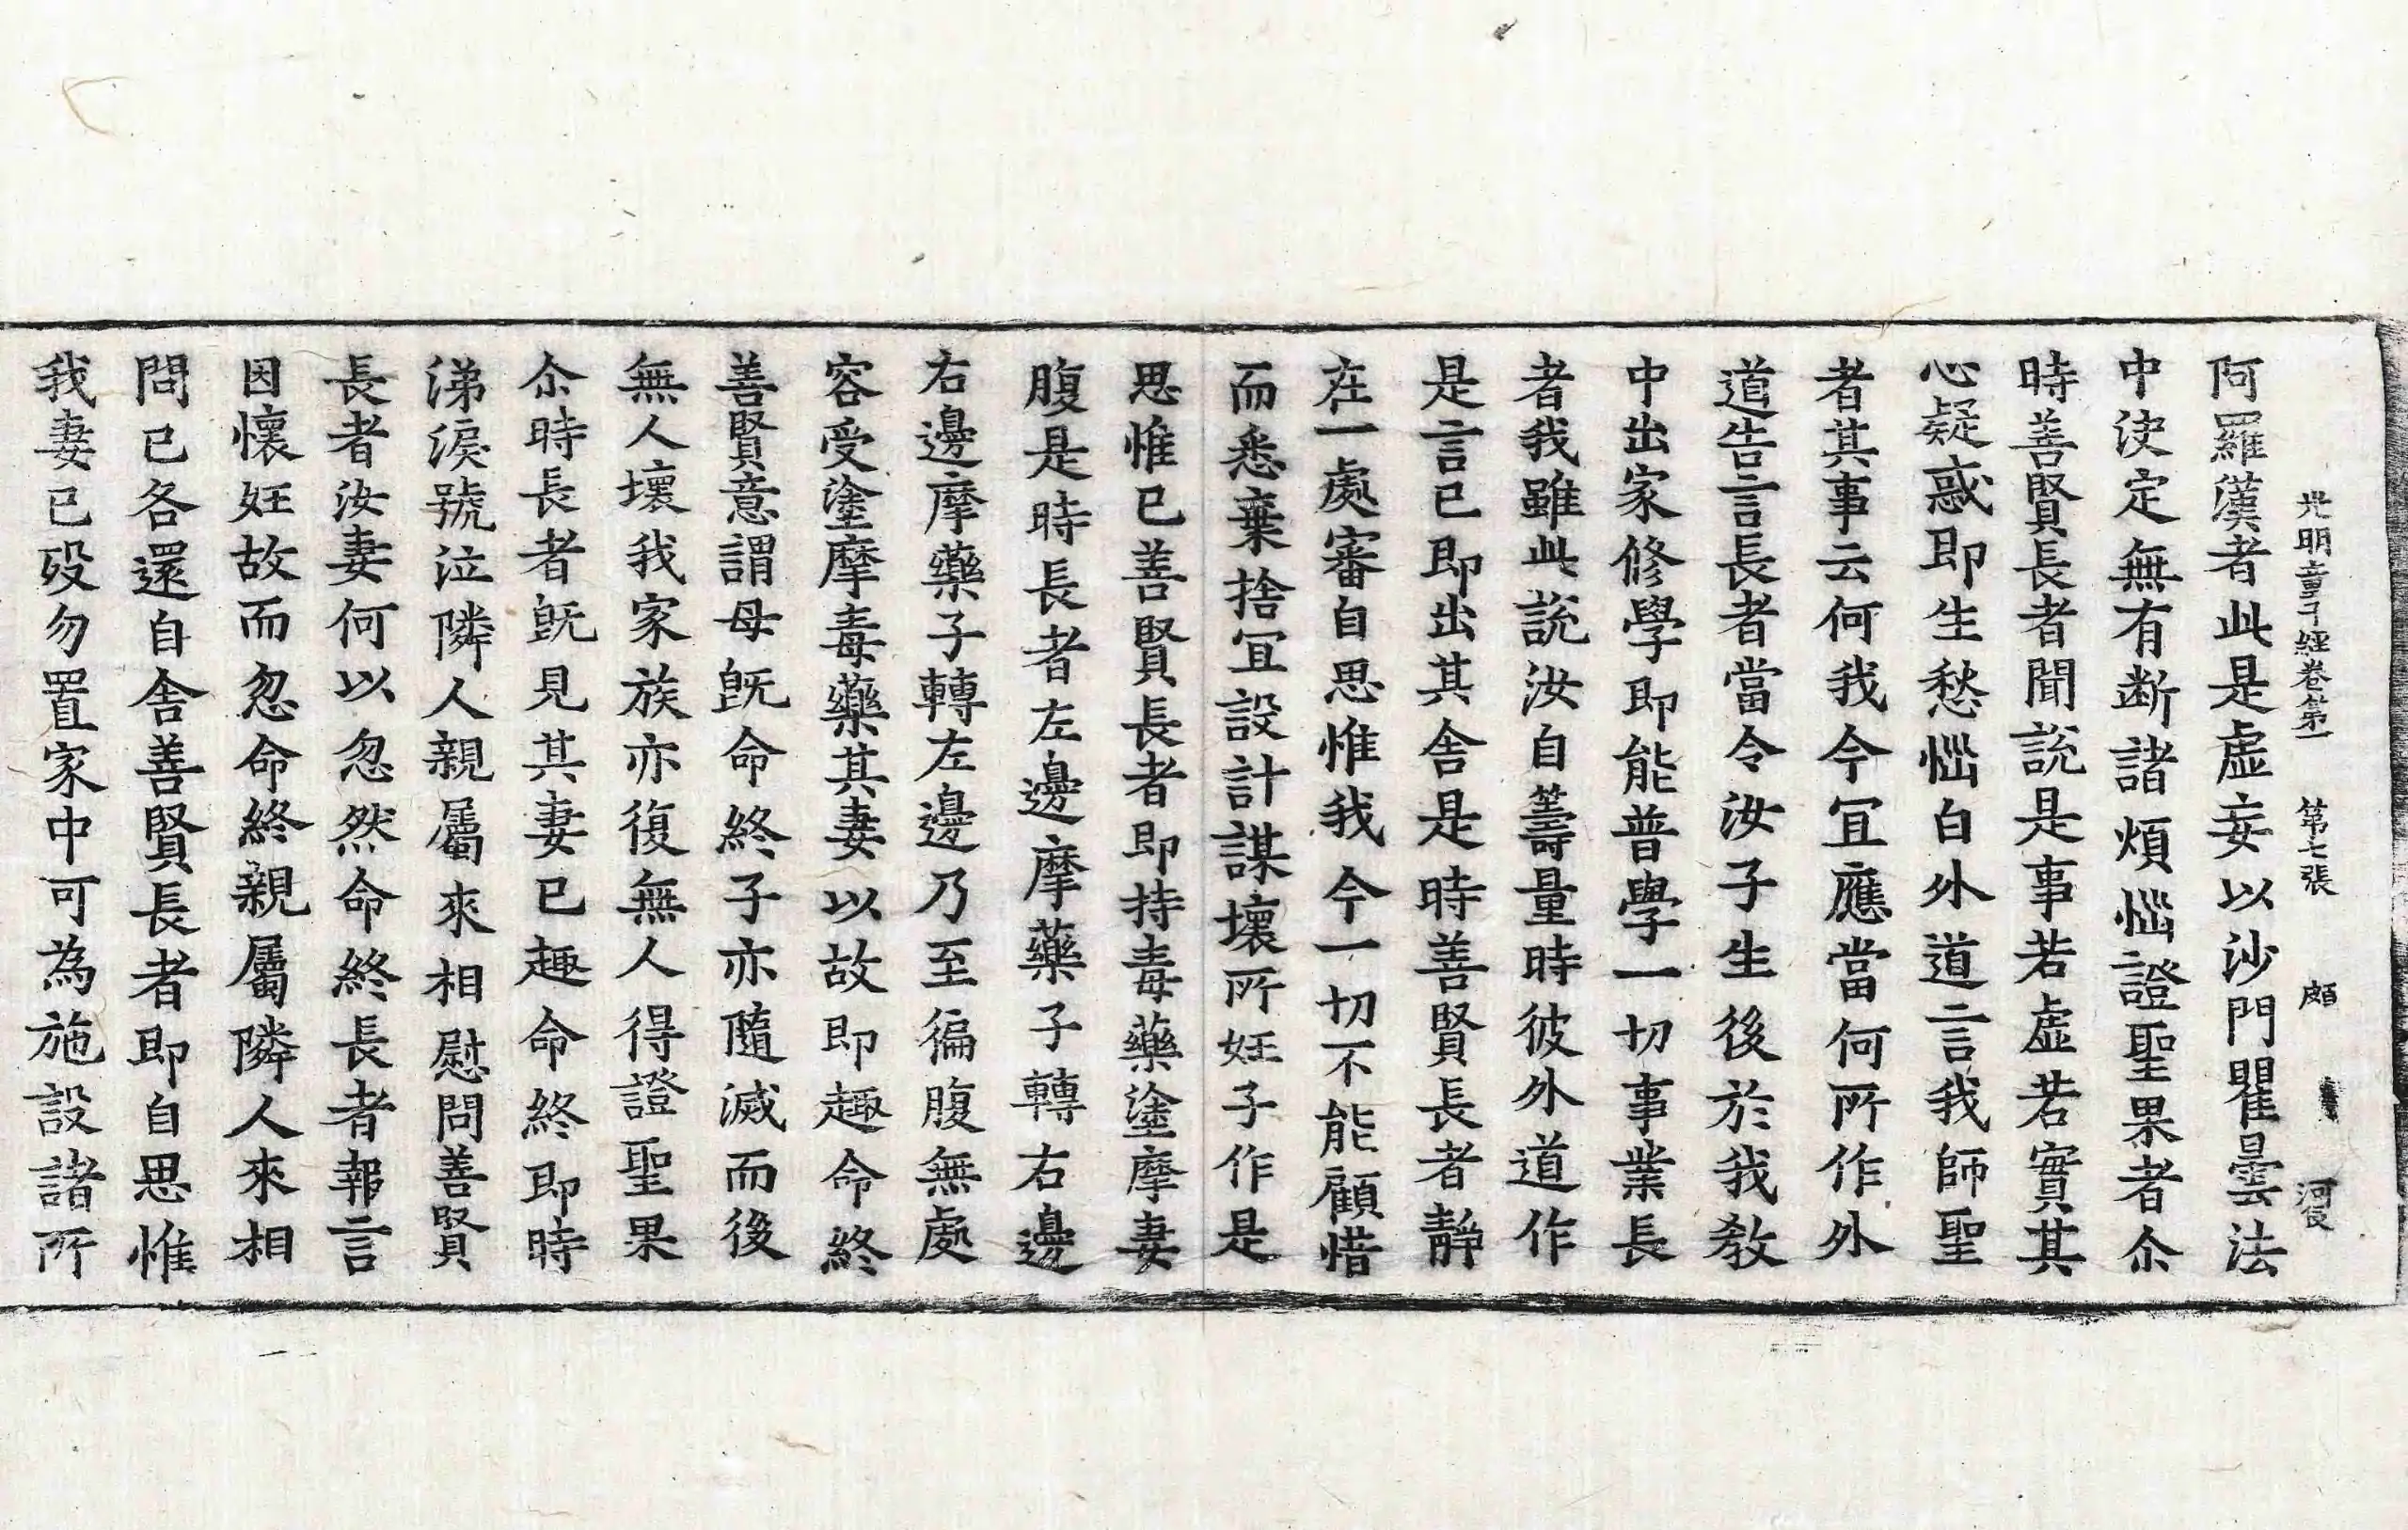 光明童子經卷第一 第七張 頗
阿羅漢者此是虛妄以沙門瞿曇法
中決定無有断諸煩惱證聖果者尒
時善賢長者聞說是事若虛若實其
心疑惑即生愁惱白外道言我師聖
者其事云何我今宜應當何所作外
道告言長者當令汝子生後於我教
中出家修學即能普學一切事業長
者我雖此說汝自籌量時彼外道作
是言已即出其舍是時善賢長者靜
在一處審自思惟我今一切不能顧惜
而悉棄捨冝設計謀壞所妊子作是
思惟已善賢長者即持毒藥塗摩妻
腹是時長者左邊摩藥子轉右邊
右邊摩藥子轉左邊乃至徧腹無處
容受塗摩毒藥其妻以故即趣命終
善賢意謂母旣命終子亦隨滅而後
無人壞我家族亦復無人得證聖果
尒時長者旣見其妻已趣命終即時
涕淚號泣隣人親屬來相慰問善賢
長者汝妻何以忽然命終長者報言
因懷妊故而忽命終親屬隣人來相
問已各還自舍善賢長者即自思惟
我妻已歿勿置家中可為施設諸所